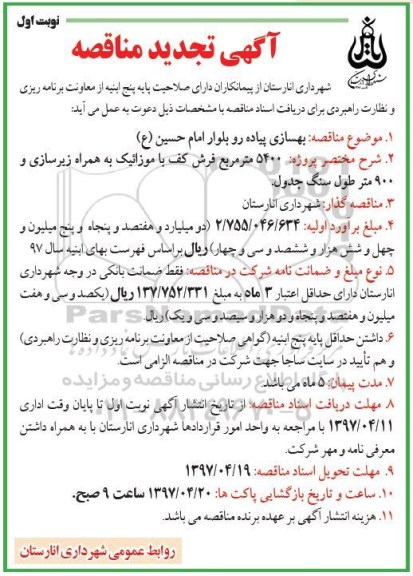 نوبت اول
آگهی تجدید مناقصه
شهرداری انارستان از پیمانکاران دارای صلاحیت پایه پنج ابنیه از معاونت برنامه ریزی
و نظارت راهبردی برای دریافت اسناد مناقصه با مشخصات ذیل دعوت به عمل می آید:
۱. موضوع مناقصه: بهسازی پیاده رو بلوار امام حسین (ع)
۲. شرح مختصر پروژه: ۵۴۰۰ مترمربع فرش کف با موزائیک به همراه زیرسازی و
۹۰۰ متر طول سنگ جدول.
۳. مناقصه گذار: شهرداری انارستان
۴. مبلغ برآورد اولیه: ۲/۷۵۵/۰۴۶/۶۳۴ (دو میلیارد و هفتصد و پنجاه و پنج میلیون و
چهل و شش هزار و ششصد و سی و چهار) ریال براساس فهرست بهای ابنیه سال ۹۷
۵. نوع مبلغ و ضمانت نامه شرکت در مناقصه: فقط ضمانت بانکی در وجه شهرداری
انارستان دارای حداقل اعتبار ۳ ماه به مبلغ ۱۳۷/۷۵۲/۳۳۱ ریال (یکصد و سی و هفت
میلیون و هفتصد و پنجاه و دو هزار و سیصد و سی و یک) ریال.
۶. داشتن حداقل پایه پنج ابنیه (گواهی صلاحیت از معاونت برنامه ریزی و نظارت راهبردی)
و هم تأیید در سایت ساجا جهت شرکت در مناقصه الزامی است.
۷. مدت پیمان: ۵ ماه می باشد.
۸. مهلت دریافت اسناد مناقصه: از تاریخ انتشار آگهی نوبت اول تا پایان وقت اداری
۱۳۹۷/۰۴/۱۱ با مراجعه به واحد امور قراردادها شهرداری انارستان با به همراه داشتن
معرفی نامه و مهر شرکت.
۹. مهلت تحویل اسناد مناقصه: ۱۳۹۷/۰۴/۱۹
۱۰. ساعت و تاریخ بازگشایی پاکت ها: ۱۳۹۷/۰۴/۲۰ ساعت ۹ صبح.
۱۱. هزینه انتشار آگهی بر عهده برنده مناقصه می باشد.
روابط عمومی شهرداری انارستان